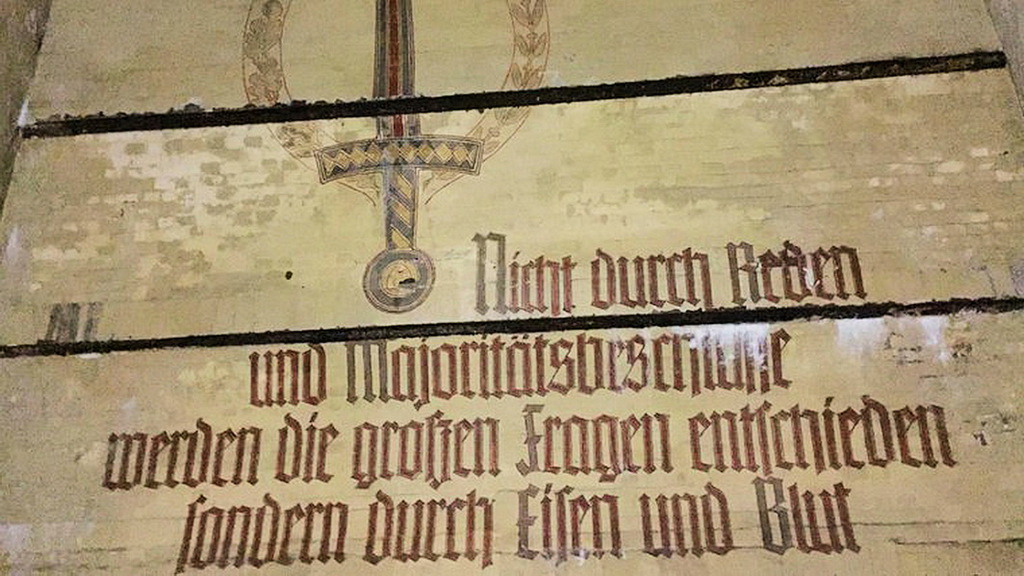 Nicht durch Reden
und Majoritätsbeschlüsse
werden die großen Fragen entschieden
sondern durch Eisen und Blut